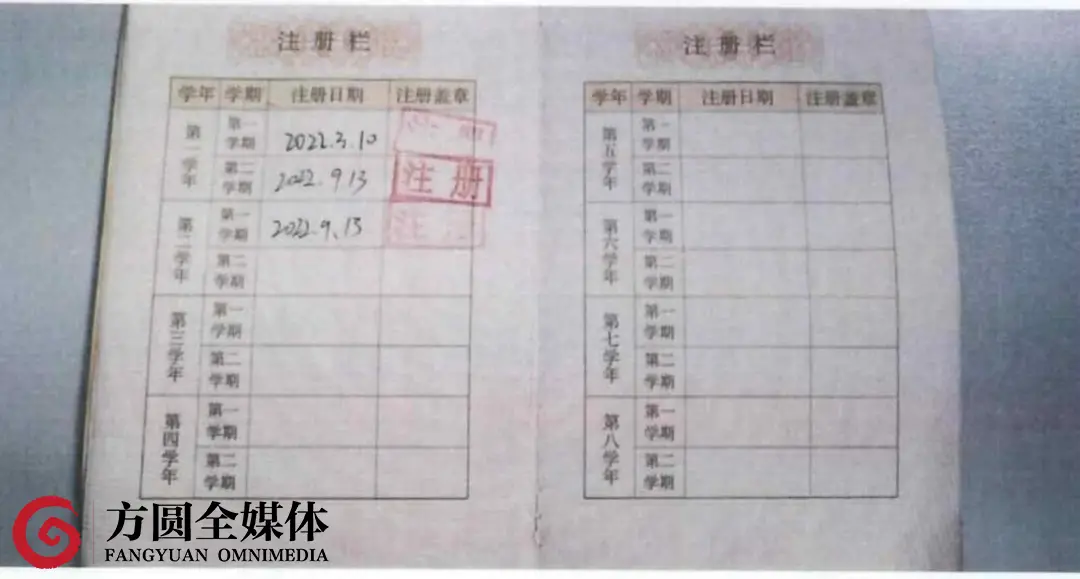 注册栏
学年 学期 注册日期 注册盖章
第一学年 第一学期 2022.3.10
第二学期 2022.9.13 注册
第二学年 第一学期 2022.9.13 注
第二学期
第三学年 第一学期
第二学期
第四学年 第一学期
第二学期
注册栏
学年 学期 注册日期 注册盖章
第五学年 第一学期
第二学期
第六学年 第一学期
第二学期
第七学年 第一学期
第二学期
第八学年 第一学期
第二学期
方圆全媒体
FANGYUAN OMNIMEDIA